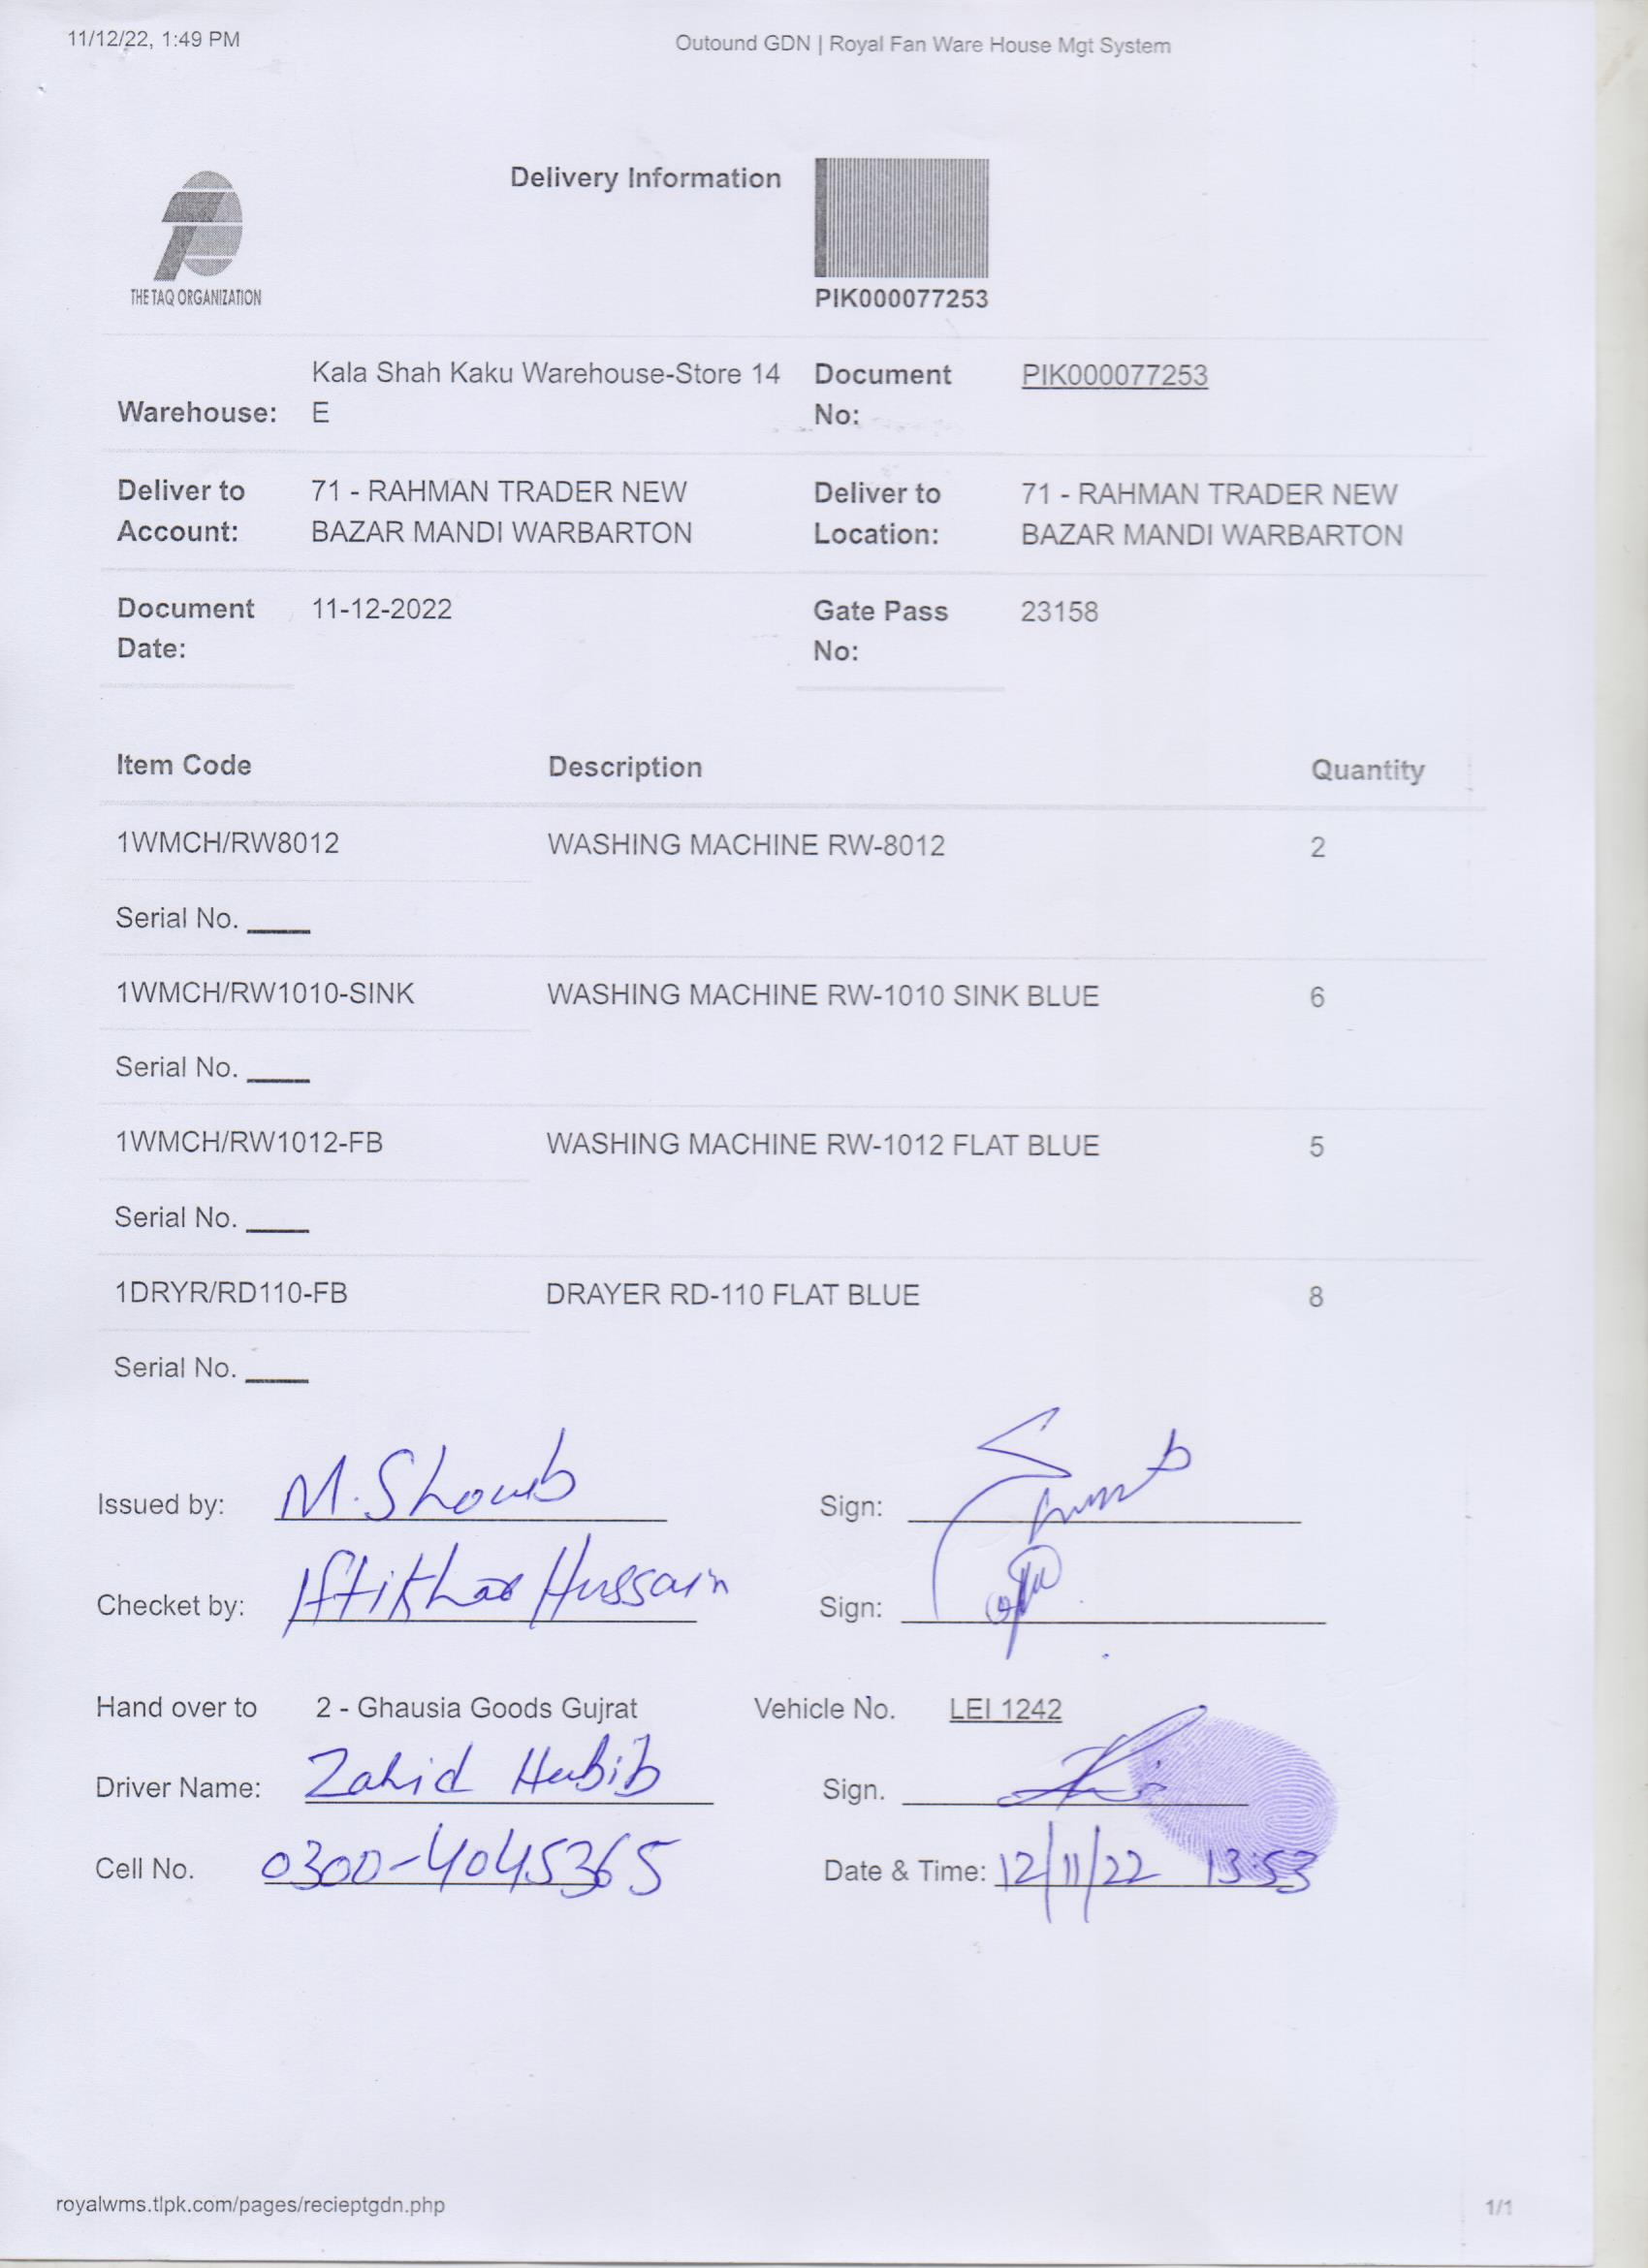 11/12/22, 1:49 PM
Outound GDN | Royal Fan Ware House Mgt System
Delivery Information
THE TAQ ORGANIZATION
PIK000077253
Kala Shah Kaku Warehouse-Store 14
Warehouse: E
Document No: PIK000077253
Deliver to Account: 71 - RAHMAN TRADER NEW
BAZAR MANDI WARBARTON
Deliver to Location: 71 - RAHMAN TRADER NEW
BAZAR MANDI WARBARTON
Document Date: 11-12-2022
Gate Pass No: 23158
Item Code Description Quantity
1WMCH/RW8012 WASHING MACHINE RW-8012 2
Serial No. ____
1WMCH/RW1010-SINK WASHING MACHINE RW-1010 SINK BLUE 6
Serial No. ____
1WMCH/RW1012-FB WASHING MACHINE RW-1012 FLAT BLUE 5
Serial No. ____
1DRYR/RD110-FB DRAYER RD-110 FLAT BLUE 8
Serial No. ____
Issued by: M. Shoub Sign:
Checket by: Iftikhar Hussain Sign:
Hand over to 2 - Ghausia Goods Gujrat Vehicle No. LEI 1242
Driver Name: Zahid Habib Sign.
Cell No. 0300-4045365 Date & Time: 12/11/22 13:53
royalwms.tlpk.com/pages/recieptgdn.php 1/1